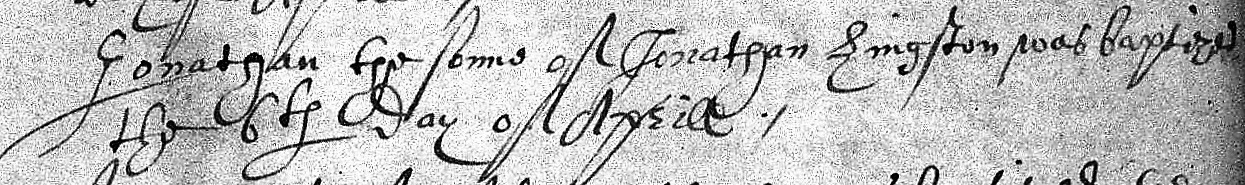 Jonathan the sonne of Jonathan Kingston was baptized
the 6th Day of Aprill